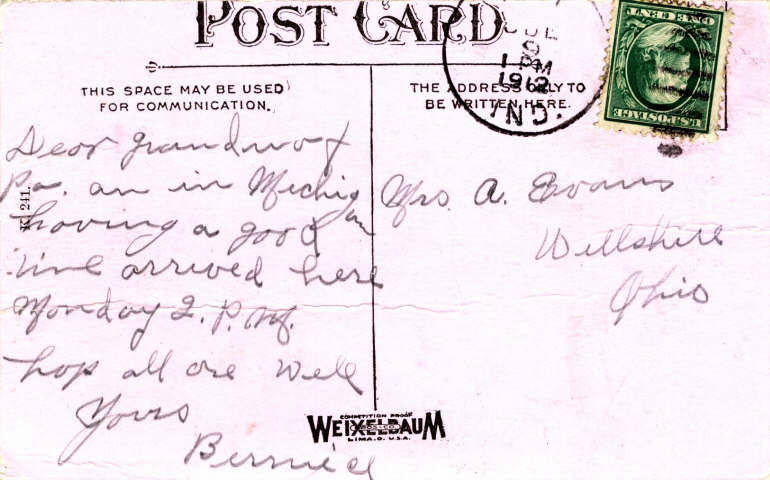 POST CARD
THIS SPACE MAY BE USED
FOR COMMUNICATION.
THE ADDRESS ONLY TO
BE WRITTEN HERE.
1 PM
1912
IND.
U.S. POSTAGE
ONE CENT
K. 241.
Dear Grandma &
Pa. am in Michigan
having a good
time arrived here
Monday 2. P.M.
hop all are Well
Yours
Bernice
Mrs. A. Evans
Willshire
Ohio
COMPETITION PROOF
WEIXELBAUM
LIMA, O. U.S.A.